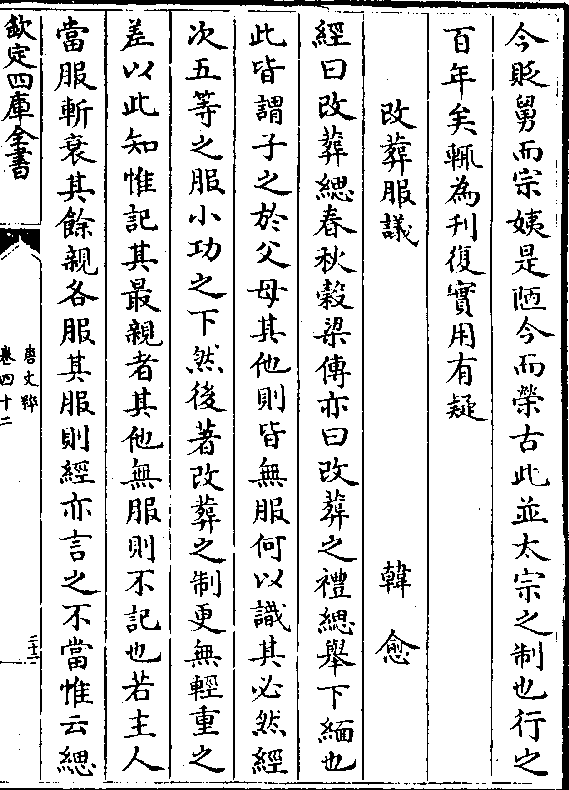 今貶舅而宗姨是陋今而榮古此並太宗之制也行之
百年矣輒為刋復實用有疑
改葬服議 韓愈
經曰改葬緦春秋穀梁傳亦曰改葬之禮緦舉下緬也
此皆謂子之於父母其他則皆無服何以識其必然經
次五等之服小功之下然後著改葬之制更無輕重之
差以此知惟記其最親者其他無服則不記也若主人
當服斬衰其餘親各服其服則經亦言之不當惟云緦
欽定四庫全書
唐文粹
卷四十二